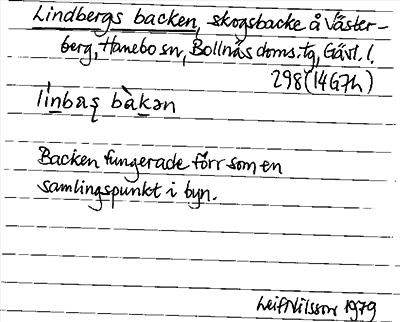 Lindbergs backen, skogsbacke å Väster-
berg, Hanebo sn, Bollnäs doms. tg, Gävl. l.
298 (14G7h)
lìnbaʂ bàkən
Backen fungerade förr som en
samlingspunkt i byn.
Leif Nilsson 1979